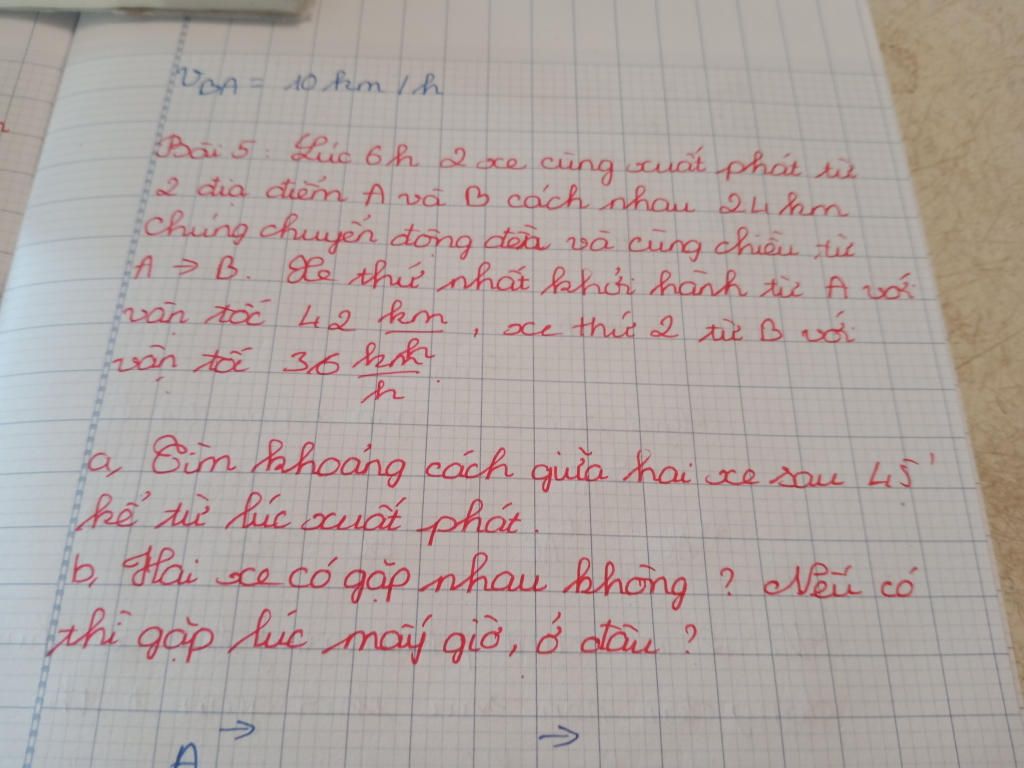 VBA = 10 km/h
Bài 5: Lúc 6h 2 xe cùng xuất phát từ
2 địa điểm A và B cách nhau 24km
chúng chuyển động đều và cùng chiều từ
A → B. Xe thứ nhất khởi hành từ A với
vận tốc 42 km, xe thứ 2 từ B với
vận tốc 36 km/h
a, Tìm khoảng cách giữa hai xe sau 45'
kể từ lúc xuất phát.
b, Hai xe có gặp nhau không? Nếu có
thì gặp lúc mấy giờ, ở đâu?
→ →
A